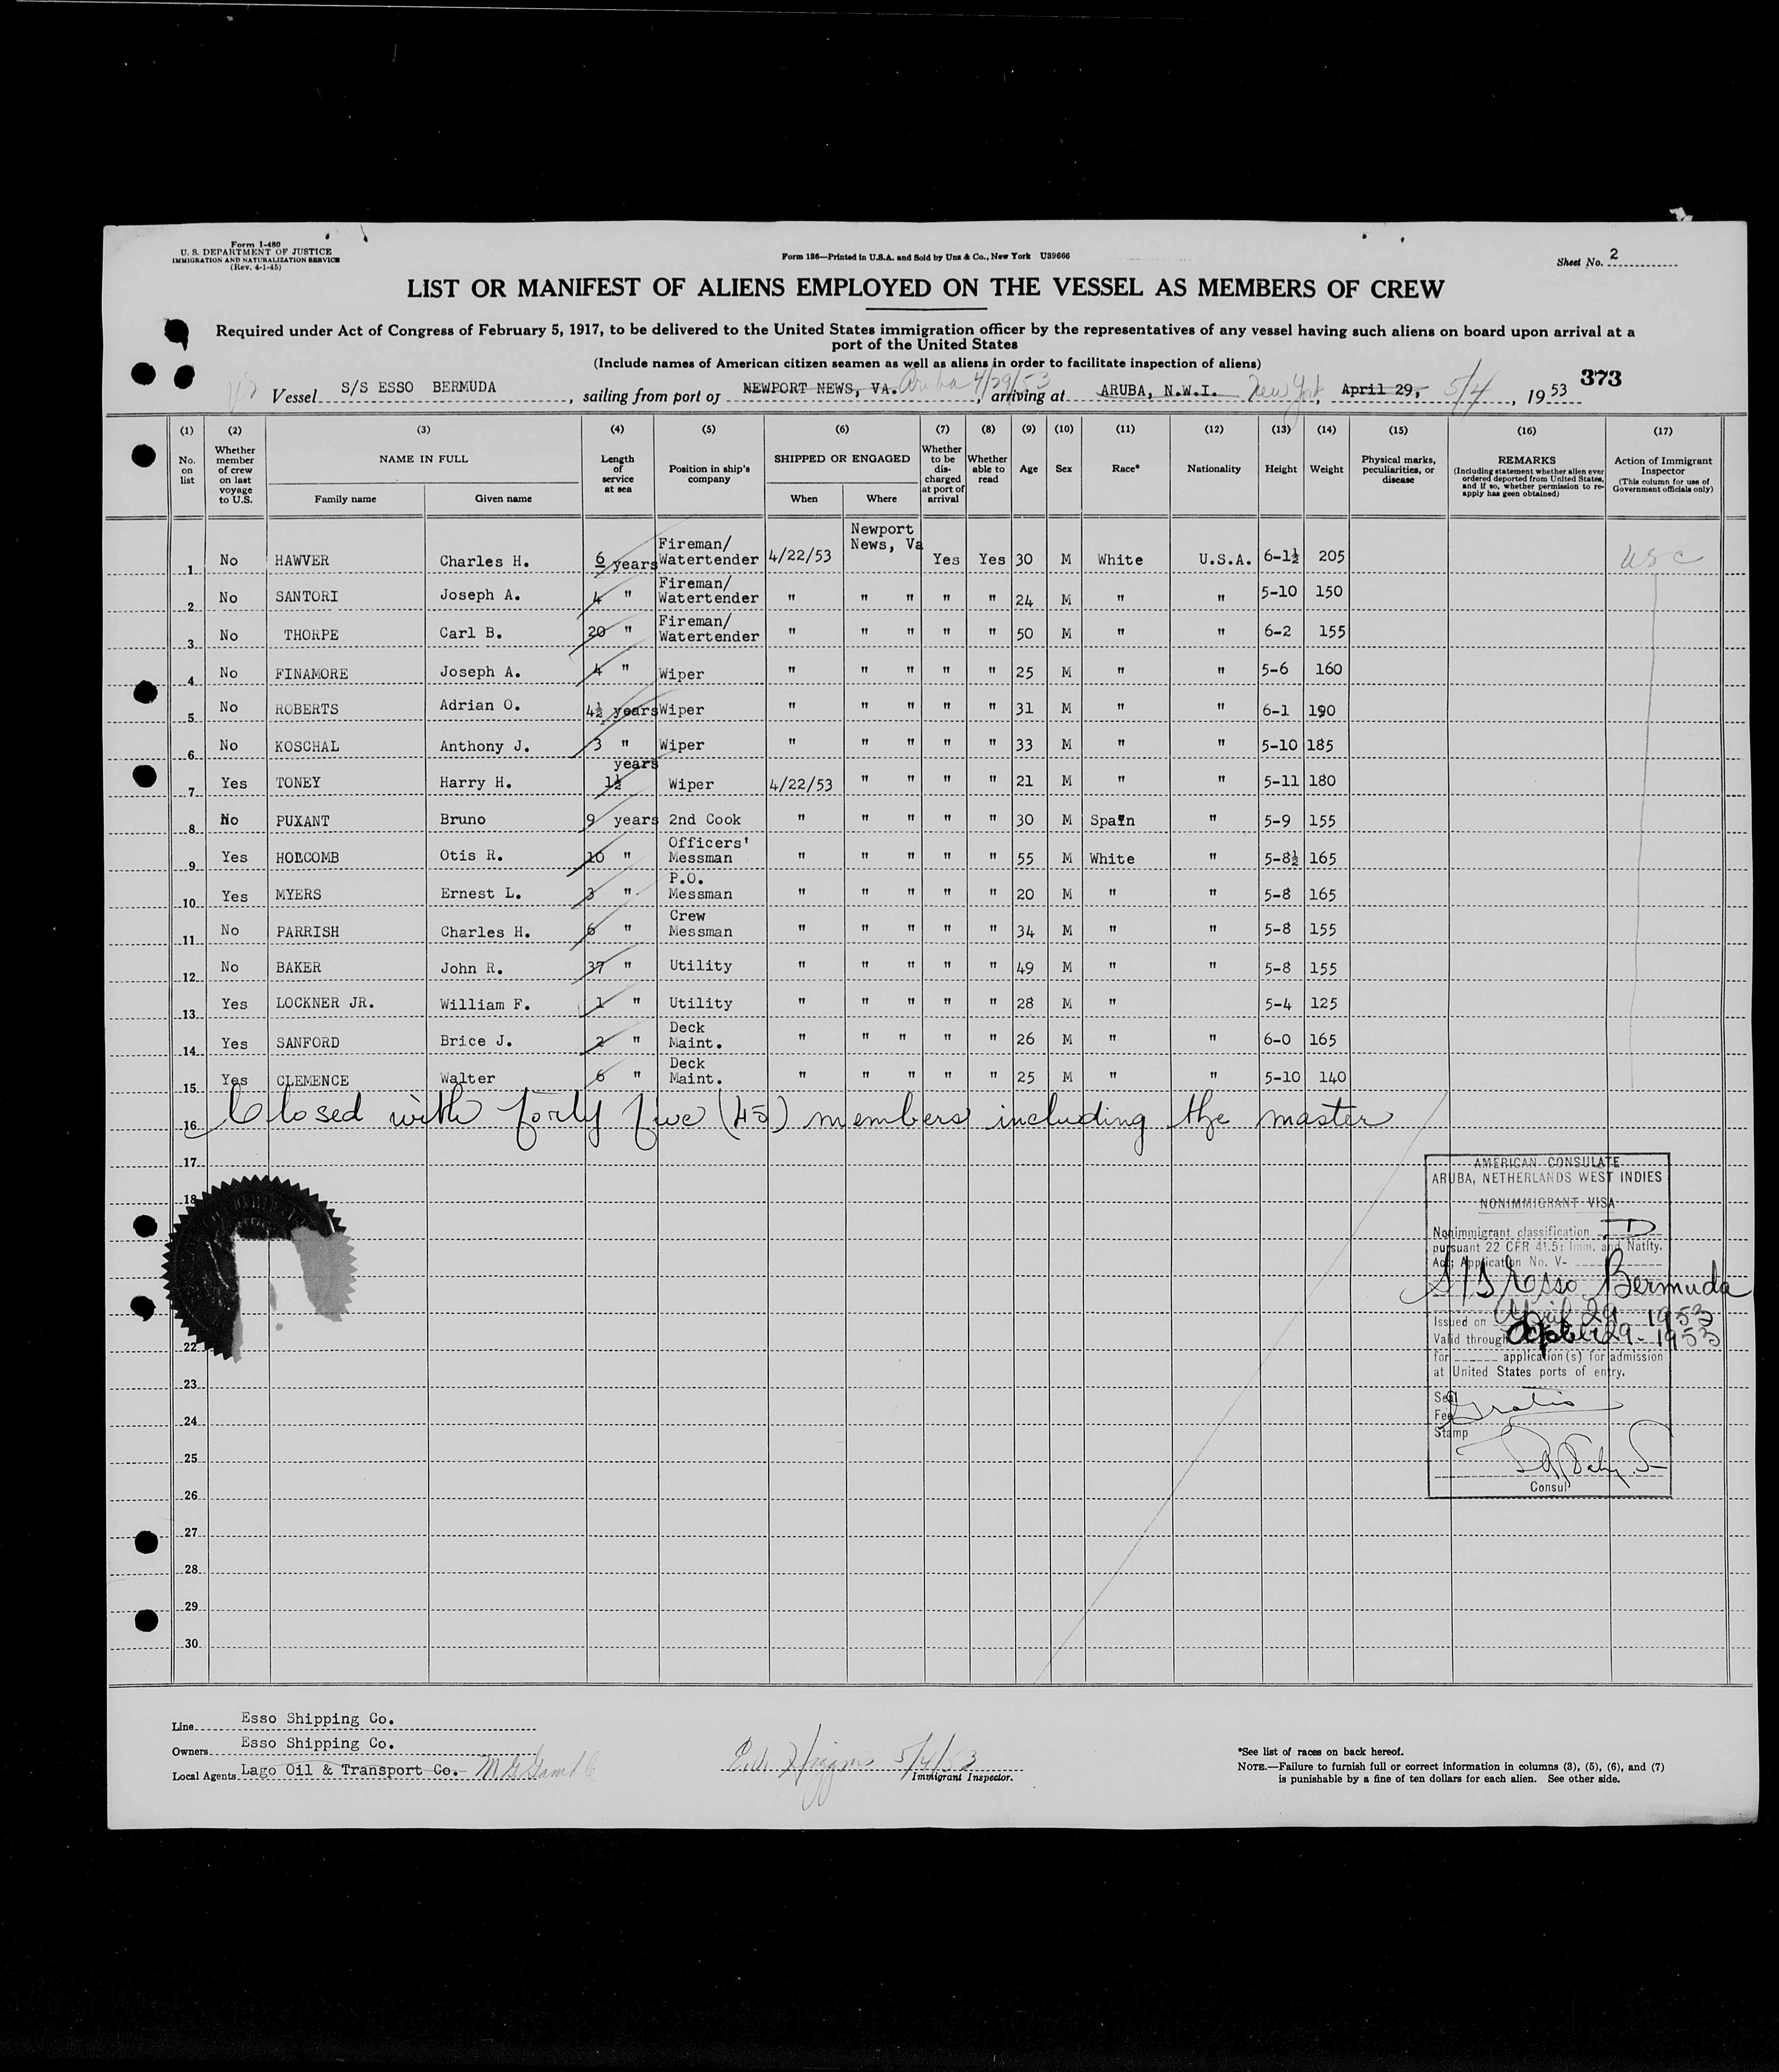 Form I-480
U. S. DEPARTMENT OF JUSTICE
IMMIGRATION AND NATURALIZATION SERVICE
(Rev. 4-1-45)
Form 136—Printed in U.S.A. and Sold by Unz & Co., New York U39666
Sheet No. 2
LIST OR MANIFEST OF ALIENS EMPLOYED ON THE VESSEL AS MEMBERS OF CREW
Required under Act of Congress of February 5, 1917, to be delivered to the United States immigration officer by the representatives of any vessel having such aliens on board upon arrival at a
port of the United States
(Include names of American citizen seamen as well as aliens in order to facilitate inspection of aliens)
373
Vessel S/S ESSO BERMUDA, sailing from port of NEWPORT NEWS, VA. Aruba 4/29/53, arriving at ARUBA, N.W.I. New York, April 29, 5/4, 1953
(1) (2) (3) (4) (5) (6) (7) (8) (9) (10) (11) (12) (13) (14) (15) (16) (17)
No. on list
Whether member of crew on last voyage to U.S.
NAME IN FULL
Family name Given name
Length of service at sea
Position in ship's company
SHIPPED OR ENGAGED
When Where
Whether to be discharged at port of arrival
Whether able to read
Age Sex Race* Nationality Height Weight
Physical marks, peculiarities, or disease
REMARKS
(Including statement whether alien ever ordered deported from United States, and if so, whether permission to reapply has geen obtained)
Action of Immigrant Inspector
(This column for use of Government officials only)
1 No HAWVER Charles H. 6 years Fireman/ Watertender 4/22/53 Newport News, Va Yes Yes 30 M White U.S.A. 6-1½ 205 USC
2 No SANTORI Joseph A. 4 " Fireman/ Watertender " " " " " 24 M " " 5-10 150
3 No THORPE Carl B. 20 " Fireman/ Watertender " " " " " 50 M " " 6-2 155
4 No FINAMORE Joseph A. 4 " Wiper " " " " " 25 M " " 5-6 160
5 No ROBERTS Adrian O. 4½ years Wiper " " " " " 31 M " " 6-1 190
6 No KOSCHAL Anthony J. 3 " Wiper " " " " " 33 M " " 5-10 185
7 Yes TONEY Harry H. 1½ years Wiper 4/22/53 " " " " 21 M " " 5-11 180
8 No PUXANT Bruno 9 years 2nd Cook " " " " " 30 M Spain " 5-9 155
9 Yes HOLCOMB Otis R. 10 " Officers' Messman " " " " " 55 M White " 5-8½ 165
10 Yes MYERS Ernest L. 3 " P.O. Messman " " " " " 20 M " " 5-8 165
11 No PARRISH Charles H. 6 " Crew Messman " " " " " 34 M " " 5-8 155
12 No BAKER John R. 37 " Utility " " " " " 49 M " " 5-8 155
13 Yes LOCKNER JR. William F. 1 " Utility " " " " " 28 M " 5-4 125
14 Yes SANFORD Brice J. 2 " Deck Maint. " " " " " 26 M " " 6-0 165
15 Yes CLEMENCE Walter 6 " Deck Maint. " " " " " 25 M " " 5-10 140
16 Closed with forty five (45) members including the master
17
18
22
23
24
25
26
27
28
29
30
AMERICAN CONSULATE
ARUBA, NETHERLANDS WEST INDIES
NONIMMIGRANT VISA
Nonimmigrant classification D
pursuant 22 CFR 41.5; Imm. and Natlty.
Act; Application No. V-
S/S Esso Bermuda
Issued on April 29 1953
Valid through October 29-1953
for application(s) for admission
at United States ports of entry.
Seal
Fee Gratis
Stamp
Consul
Line Esso Shipping Co.
Owners Esso Shipping Co.
Local Agents Lago Oil & Transport Co. M G Gamble
Higgins 5/4/53
Immigrant Inspector.
*See list of races on back hereof.
NOTE.—Failure to furnish full or correct information in columns (3), (5), (6), and (7)
is punishable by a fine of ten dollars for each alien. See other side.